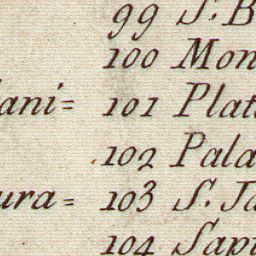 99 S. B
100 Mon
lani= 101 Plat
102 Pala
ura= 103 S. Ja
104 Sapi